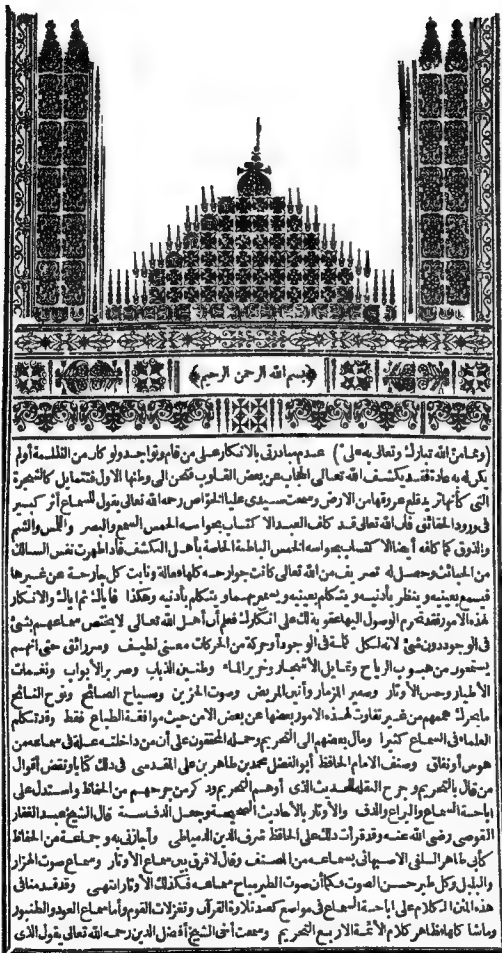 ﴿بسم الله الرحمن الرحيم﴾
(ومما من الله تبارك وتعالى به على) عدم مبادرتى بالانكار على من قام وتواجد ولو كان من الظلمة أولم
يكن له به عادة فقد يكشف الله تعالى الحجاب عن بعض القلوب فتحن الى وطنها الاول فتتمايل كالشجرة
التى كأنها تريد قلع عروقها من الارض وسمعت سيدى عليا الخواص رحمه الله تعالى يقول للسماع أثر كبير
فى ورود الحقائق فان الله تعالى قد كلف العبد الاكتساب بحواسه الخمس السمع والبصر واللمس والشم
والذوق كما كلفه أيضا الاكتساب بحواسه الخمس الباطنة الخاصة بأهل الكشف فاذا طهرت نفس السالك
من الخبائث وحصل له تصريف من الله تعالى كانت جوارحه كلها فعالة ونابت كل جارحة عن غيرها
فيسمع بعينيه وينظر بأذنيه ويتكلم بعينيه ويسمع بهما ويتكلم بأذنيه وهكذا فاياك ثم اياك والانكار
لهذه الامور فتحرم الوصول اليها عقوبة لك على انكارك فعلم أن أهل الله تعالى لا يختص سماعهم بشئ
فى الوجود دون شئ لانه لكل كلمة فى الوجود أو حركة من الحركات معنى لطيف وسر رائق حتى انهم
يسمعون من هبوب الرياح وتمايل الاشجار وخرير الماء وطنين الذباب وصرير الأبواب ونغمات
الأطيار وحس الأوتار وصفير المزمار وأنين المريض وصوت الحزين وصياح الصائح ونوح النائح
ما يحرك هممهم من غير تفاوت لهذه الامور بعضها عن بعض الا من حيث موافقة الطباع فقط وقد تكلم
العلماء فى السماع كثيرا ومال بعضهم الى التحريم وحمله المحققون على أن من داخلته علة فى سماعه من
هوس أو نفاق وصنف الامام الحافظ أبو الفضل محمد بن طاهر بن على المقدسى فى ذلك كتابا ونقض أقوال
من قال بالتحريم وجرح النقلة للحديث الذى أوهم التحريم وذكر من جرحهم من الحفاظ واستدل على
اباحة السماع واليراع والدف والأوتار بالأحاديث الصحيحة وجعل الدف سنة قال الشيخ عبد الغفار
القوصى رضى الله عنه وقد قرأت ذلك على الحافظ شرف الدين الدمياطى وأجازنى به وجماعة من الحفاظ
كأبى طاهر السلفى الاصبهانى بسماعه من المصنف وقال لا فرق بين سماع الأوتار وسماع صوت الهزار
والبلبل وكل طير حسن الصوت فكما أن صوت الطير مباح سماعه فكذلك الأوتار انتهى وقد قدمنا فى
هذه المنن الكلام على اباحة السماع فى مواضع كعند تلاوة القرآن وتغزلات القوم وأما سماع العود والطنبور
وما شاكلها فظاهر كلام الأئمة الاربع التحريم وسمعت أخى الشيخ أفضل الدين رحمه الله تعالى يقول الذى